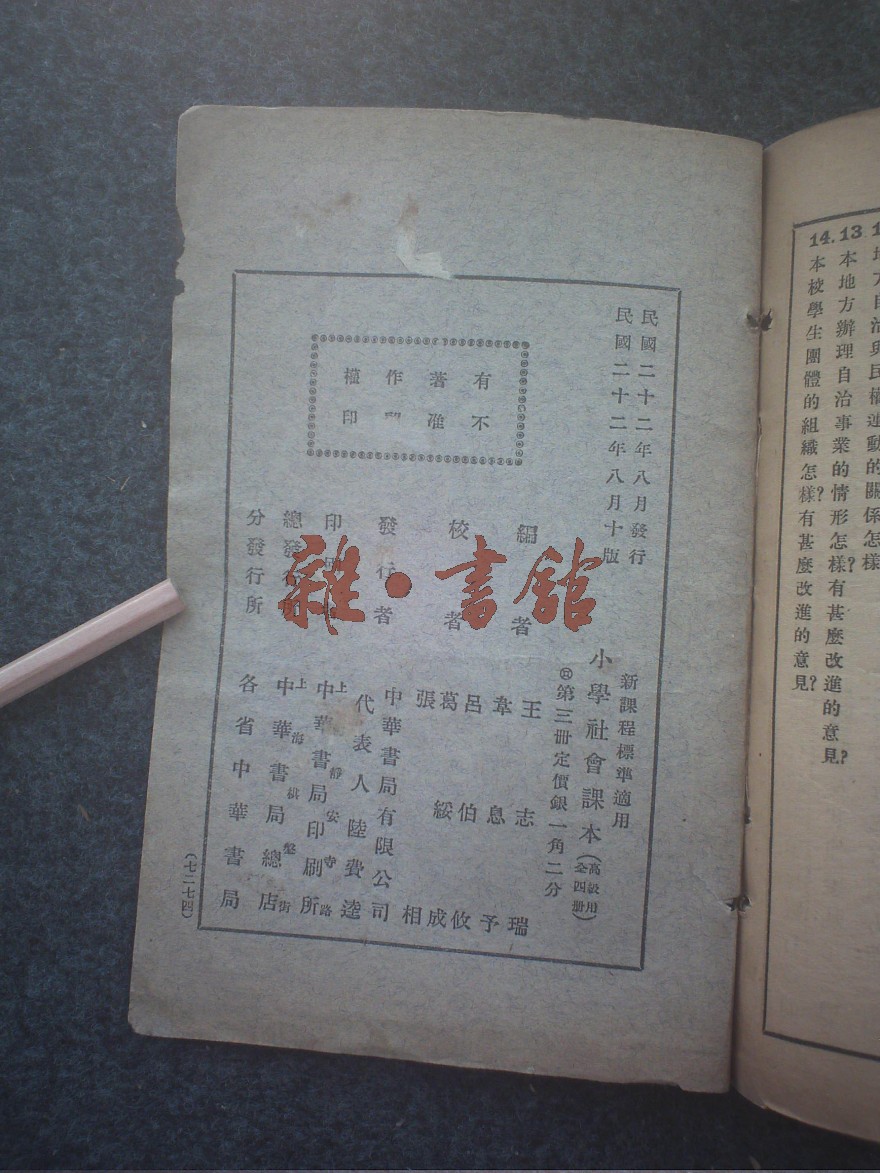 13 本地方辦理自治事業的情形怎樣?有甚麼改進的意見?
14. 本校學生團體的組織怎樣?有甚麼改進的意見?
民國二十二年八月發行
民國二十二年八月十版
有著作權
不准 印
新課程標準適用
小學社會課本(高級用 全四冊)
第三冊定價銀一角二分
編者
王志瑞
韋息予
校者
呂伯攸
葛綏成
張相
發行者
中華書局有限公司
代表人 陸費逵
印 
上 靜安寺路
中華書局印刷所
總發行所
上海棋盤街
中華書局總店
分發行所
各省中華書局
(七二七四)
雜·書館